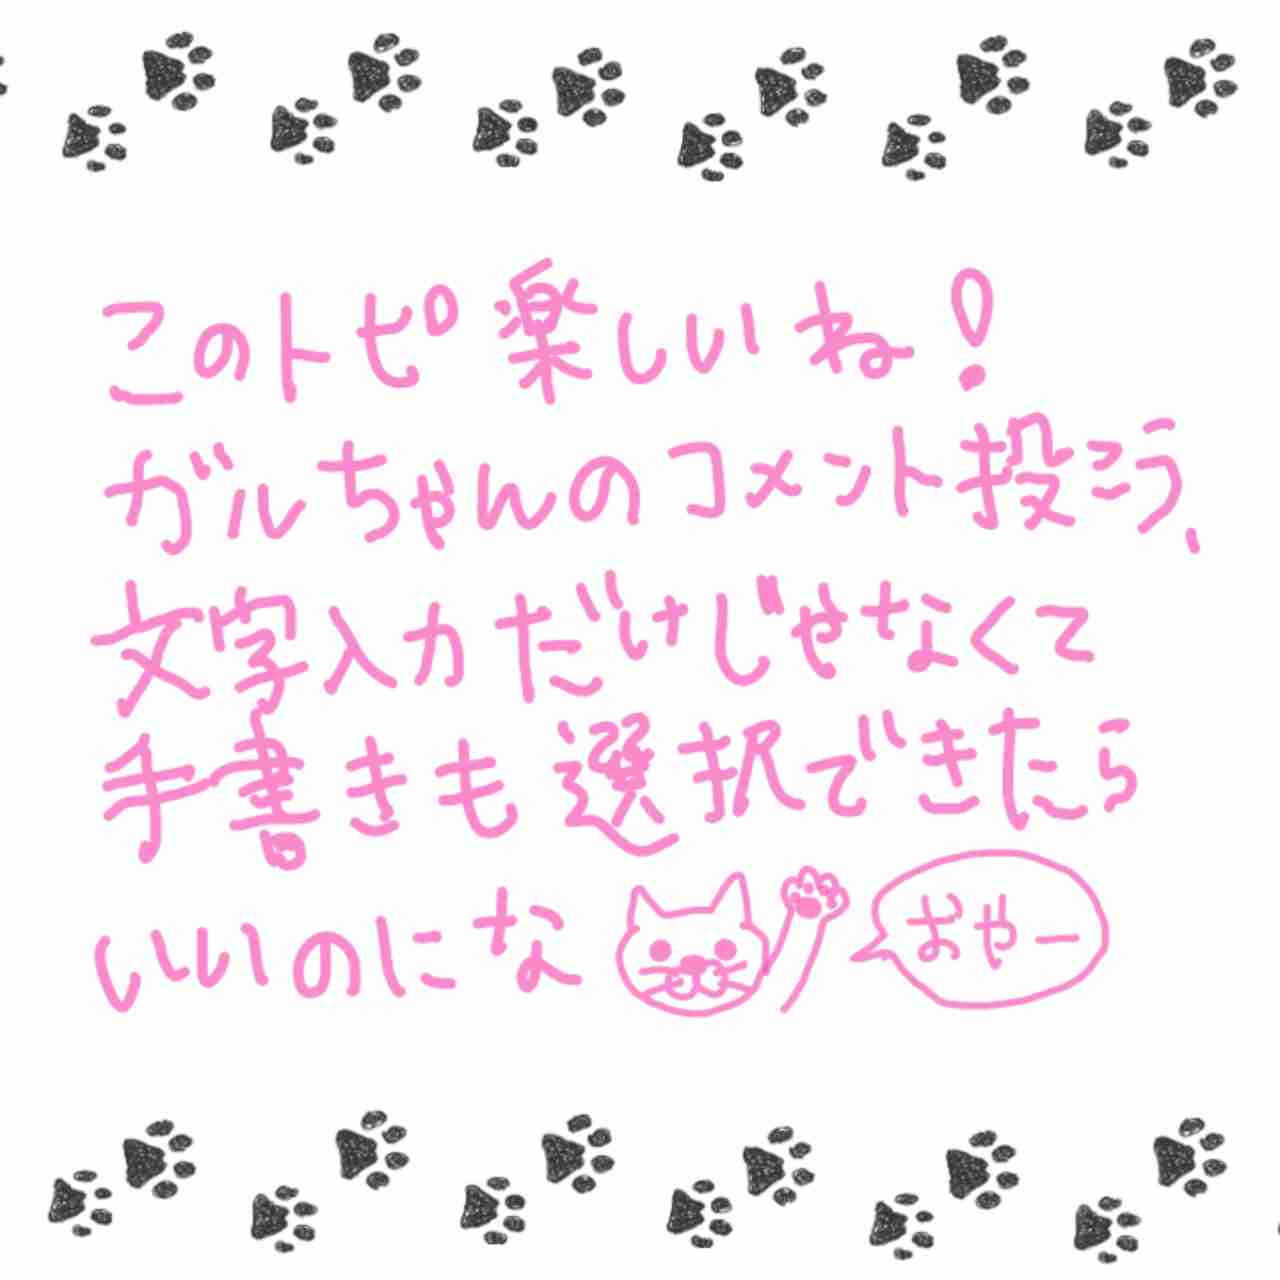 このトピ楽しいね!
ガルちゃんのコメント投こう、
文字入力だけじゃなくて
手書きも選択できたら
いいのにな
おやー